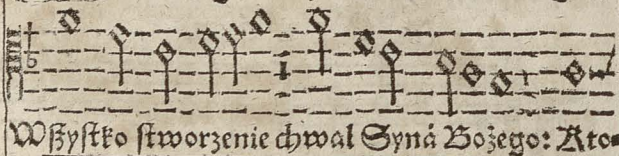 Wſzyſtko ſtworzenie chwal Syná Bożego: Kto-